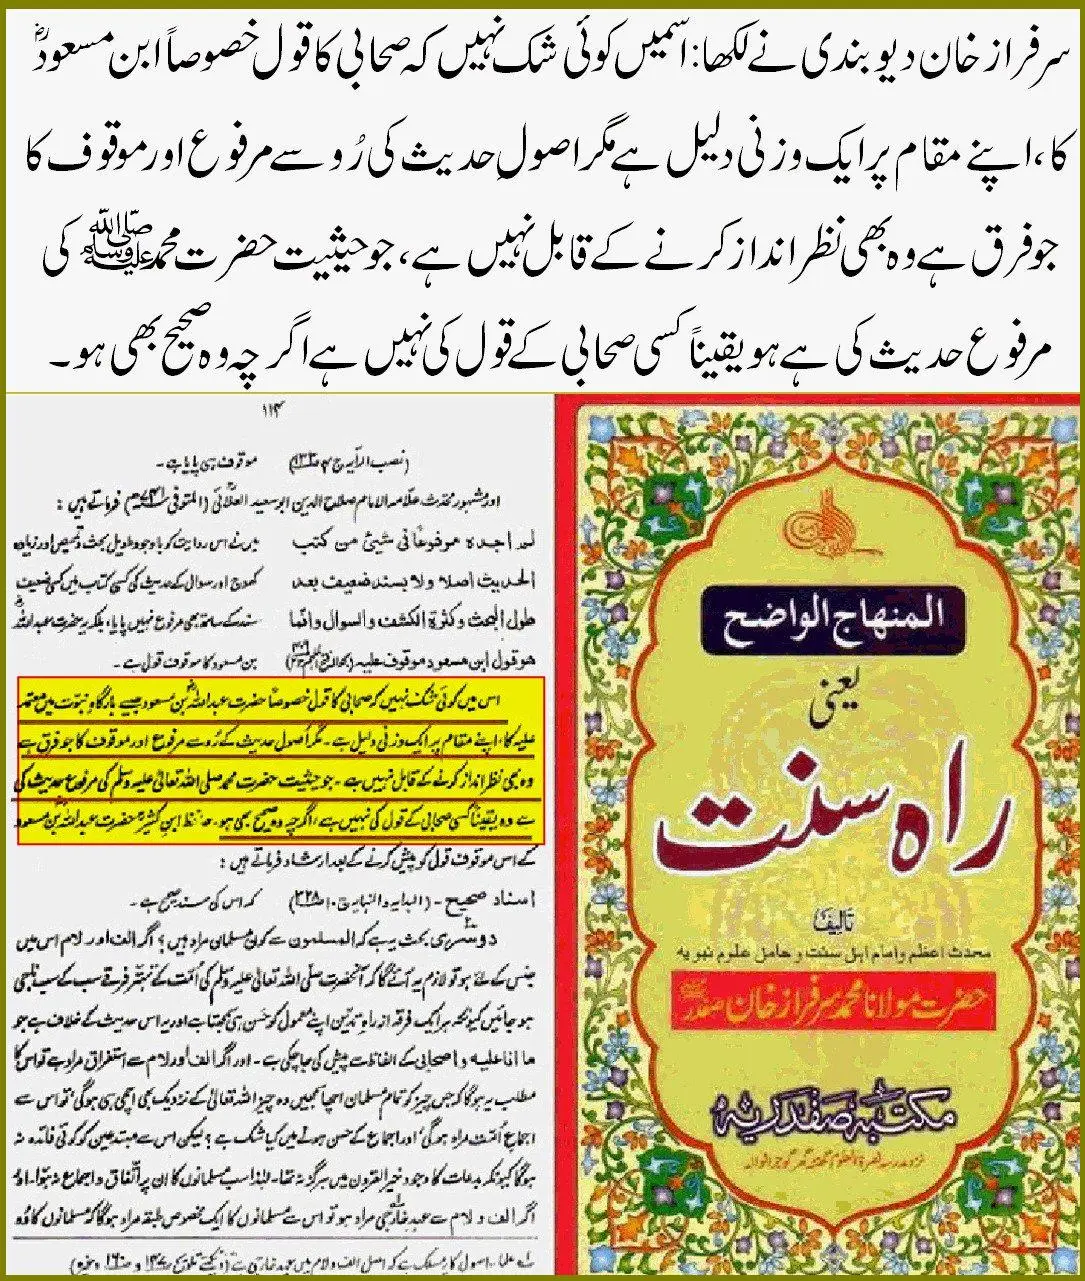 سرفراز خان دیوبندی نے لکھا: اسمیں کوئی شک نہیں کہ صحابی کا قول خصوصاً ابن مسعودؓ
کا، اپنے مقام پر ایک وزنی دلیل ہے مگر اصولِ حدیث کی رُو سے مرفوع اور موقوف کا
جو فرق ہے وہ بھی نظر انداز کرنے کے قابل نہیں ہے، جو حیثیت حضرت محمد ﷺ کی
مرفوع حدیث کی ہے ہو یقیناً کسی صحابی کے قول کی نہیں ہے اگرچہ وہ صحیح بھی ہو۔
۱۱۴
(نصب الرایہ ج۴ ص۱۳۳) موقوف ہی پایا ہے۔
اور مشہور محدث علامہ الامام صلاح الدین ابو سعید العلائیؒ (المتوفی ) فرماتے ہیں:
لم اجدہ مرفوعا فی شیئ من کتب
الحدیث اصلا ولا بسند ضعیف بعد
طول البحث وکثرۃ الکشف والسوال وانما
ھو قول ابن مسعود موقوف علیہ
میں نے اس روایت کو باوجود طویل بحث و تمحیص اور زیادہ
کھوج اور سوال کے حدیث کی کسی کتاب میں کسی ضعیف
سند کے ساتھ بھی مرفوع نہیں پایا، بلکہ یہ حضرت عبداللہؓ
بن مسعود کا موقوف قول ہے۔
اس میں کوئی شک نہیں کہ صحابی کا قول خصوصاً حضرت عبداللہؓ بن مسعود جیسے بارگاہِ نبوت میں معتمد
علیہ کا، اپنے مقام پر ایک وزنی دلیل ہے۔ مگر اصول حدیث کے رُو سے مرفوع اور موقوف کا جو فرق ہے
وہ بھی نظر انداز کرنے کے قابل نہیں ہے۔ جو حیثیت حضرت محمد صلی اللہ تعالیٰ علیہ وسلم کی مرفوع حدیث کی
ہے وہ یقیناً کسی صحابی کے قول کی نہیں ہے، اگرچہ وہ صحیح بھی ہو۔ حافظ ابن کثیرؒ حضرت عبداللہؓ بن مسعود
کے اس موقوف قول کو پیش کرنے کے بعد ارشاد فرماتے ہیں:
اسناد صحیح۔ (البدایہ والنہایہ ج۱۰ ص۳۲۸) کہ اس کی سند صحیح ہے۔
دوسری بحث یہ ہے کہ المسلمون سے کون مسلمان مراد ہیں؟ اگر الف اور لام اس میں
جنس کے لئے ہو تو لازم یہ آئے گا کہ آنحضرت صلی اللہ تعالیٰ علیہ وسلم کی اُمّت کے تہتّر فرقے سب کے سب ناجی
ہو جائیں کیونکہ ہر ایک فرقہ از راہِ تدیّن اپنے معمول کو حَسن ہی سمجھتا ہے اور یہ اس حدیث کے خلاف ہے جو
ما انا علیہ واصحابی کے الفاظ سے پیش کی جا چکی ہے۔ اور اگر الف اور لام سے استغراق مراد ہے تو اس کا
مطلب یہ ہوگا کہ جس چیز کو تمام مسلمان اچھا سمجھیں وہ چیز اللہ تعالیٰ کے نزدیک بھی اچھی ہی ہوگی تو اس سے
اجماع اُمّت مراد ہوگی اور اجماع کے حسن ہونے میں کیا شک ہے؟ لیکن اس سے مبتدعین کو کوئی فائدہ نہ
ہوگا کیونکہ بدعات کا وجود خیر القرون میں ہرگز نہ تھا۔ لہٰذا سب مسلمانوں کا ان پر اتفاق و اجماع نہ ہوا۔ اور
اگر الف و لام سے عہد خارجی مراد ہو تو اس سے مسلمانوں کا ایک مخصوص طبقہ مراد ہوگا کہ مسلمانوں کا وہ
المنہاج الواضح
یعنی
راہ سنت
تالیف
محدث اعظم و امام اہل سنت و حامل علوم نبویہ
حضرت مولانا محمد سرفراز خان صفدر
مکتبہ صفدریہ
نزد مدرسہ نصرۃ العلوم گھنٹہ گھر گوجرانوالہ